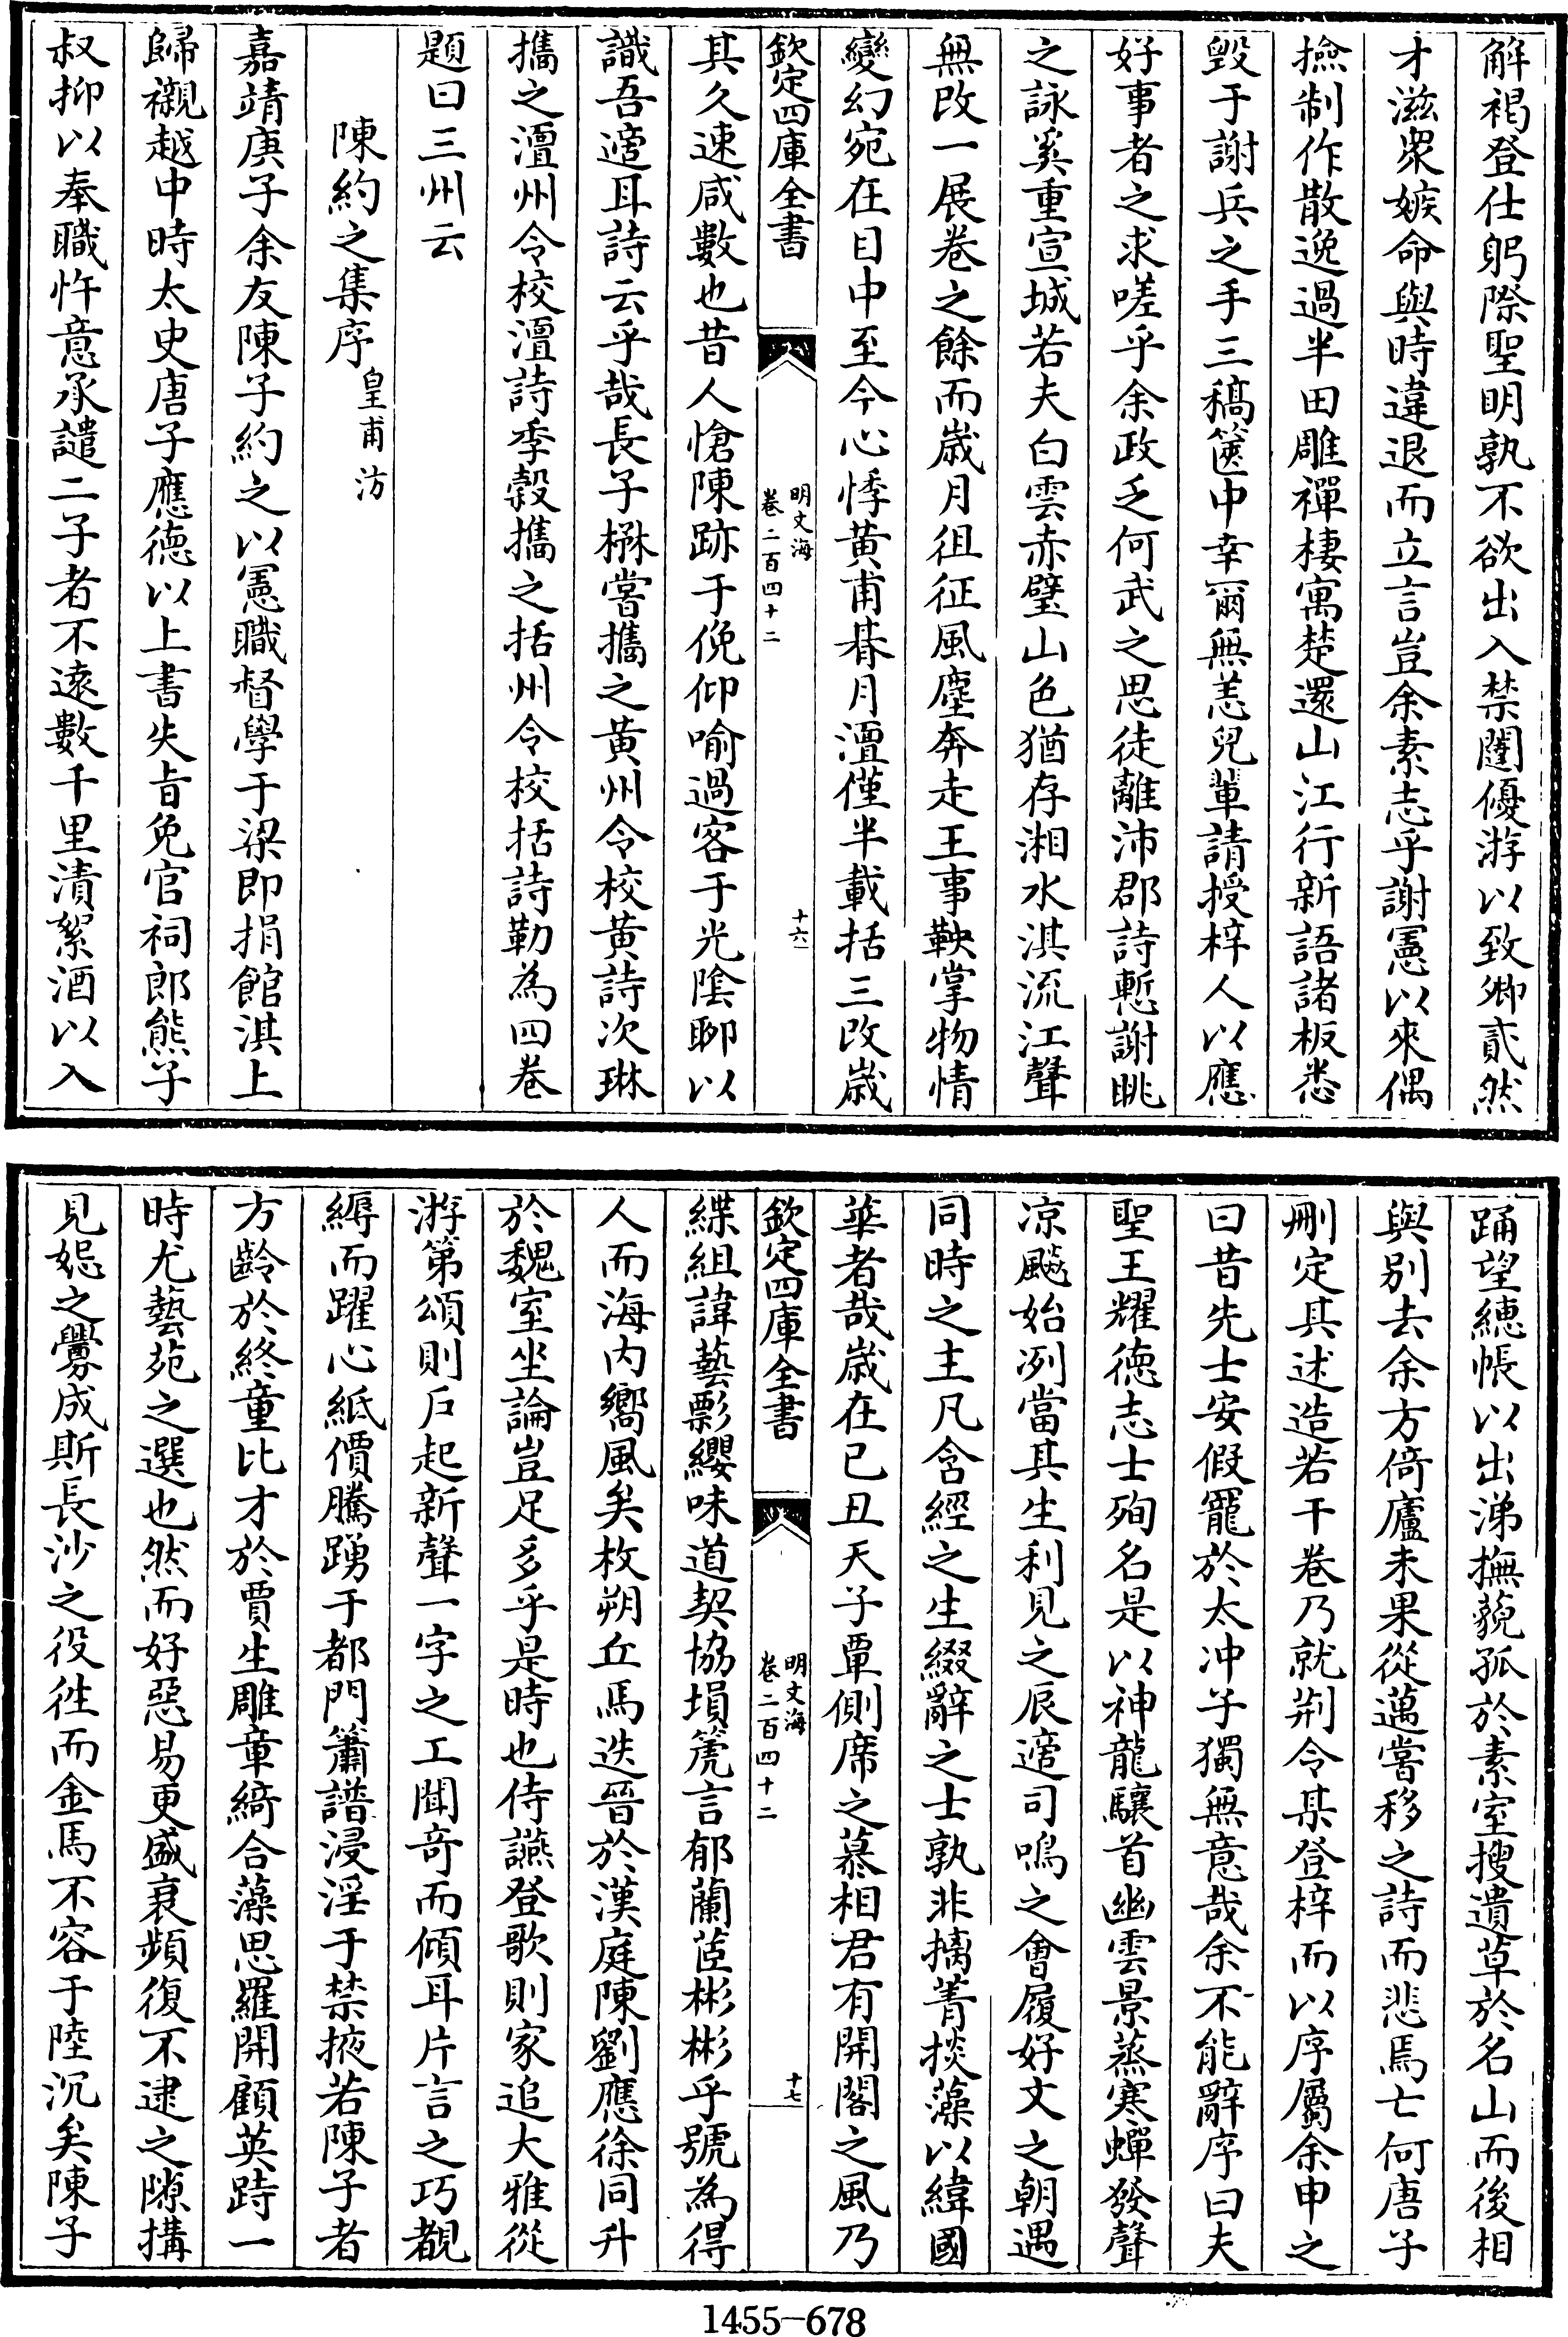 解褐登仕躬際聖明孰不欲出入禁闥優游以致卿貳然
才滋衆嫉命與時違退而立言豈余素志乎謝憲以來偶
撿制作散逸過半田雕禪棲寓楚還山江行新語諸板悉
毀于謝兵之手三稿篋中幸爾無恙兒輩請授梓人以應
好事者之求嗟乎余政乏何武之思徒離沛郡詩慙謝眺
之詠奚重宣城若夫白雲赤壁山色猶存湘水淇流江聲
無改一展卷之餘而歲月徂征風塵奔走王事鞅掌物情
變幻宛在目中至今心悸黃甫朞月澶僅半載括三改歲
欽定四庫全書
明文海
卷二百四十二
十六
其久速咸數也昔人愴陳跡于俛仰喻過客于光陰聊以
識吾適耳詩云乎哉長子楙嘗攜之黃州令校黃詩次琳
攜之澶州令校澶詩季穀攜之括州令校括詩勒為四卷
題曰三州云
陳約之集序皇甫汸
嘉靖庚子余友陳子約之以憲職督學于梁即捐館淇上
歸櫬越中時太史唐子應德以上書失旨免官祠郎熊子
叔抑以奉職忤意承譴二子者不遠數千里漬絮酒以入
踊望繐帳以出涕撫藐孤於素室搜遺草於名山而後相
與別去余方倚廬未果從邁嘗移之詩而悲焉亡何唐子
刪定其述造若干卷乃就荆令某登梓而以序屬余申之
曰昔先士安假寵於太冲子獨無意哉余不能辭序曰夫
聖王耀德志士殉名是以神龍驤首幽雲景蒸寒蟬發聲
凉飈始冽當其生利見之辰適司鳴之會履好文之朝遇
同時之主凡含經之生綴辭之士孰非摛菁掞藻以緯國
華者哉歲在己丑天子覃側席之慕相君有開閣之風乃
欽定四庫全書
明文海
卷二百四十二
十七
緤組諱藝彯纓味道契協塤箎言郁蘭茝彬彬乎號為得
人而海内嚮風矣枚朔丘馬迭晉於漢庭陳劉應徐同升
於魏室坐論豈足多乎是時也侍讌登歌則家追大雅從
游第頌則戶起新聲一字之工聞竒而傾耳片言之巧覩
縟而躍心紙價騰踴于都門簫譜浸淫于禁掖若陳子者
方齡於終童比才於賈生雕章綺合藻思羅開顧英跱一
時尤藝苑之選也然而好惡易更盛衰頻復不逮之隙搆
見妮之釁成斯長沙之役徃而金馬不容于陸沉矣陳子
1455-678